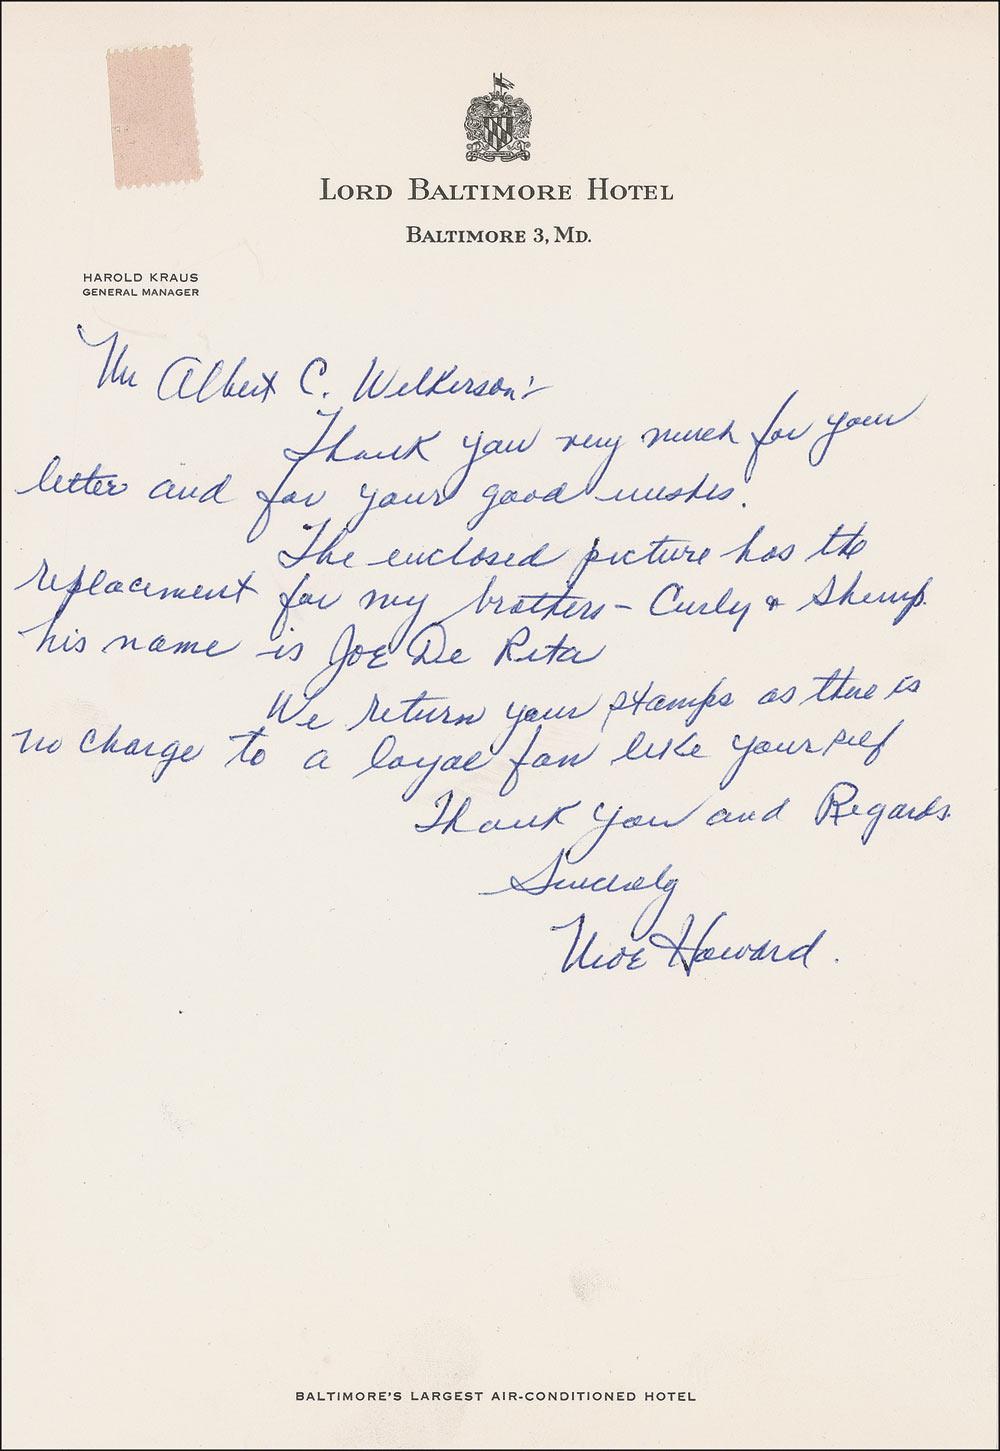 LORD BALTIMORE HOTEL
BALTIMORE 3, MD.
HAROLD KRAUS
GENERAL MANAGER
Mr Albert C. Wilkerson:-
Thank you very much for your
letter and for your good wishes.
The enclosed picture has the
replacement for my brothers - Curly & Shemp.
his name is Joe De Rita
We return your stamps as there is
no charge to a loyal fan like yourself
Thank you and Regards.
Sincerely
Moe Howard.
BALTIMORE'S LARGEST AIR-CONDITIONED HOTEL